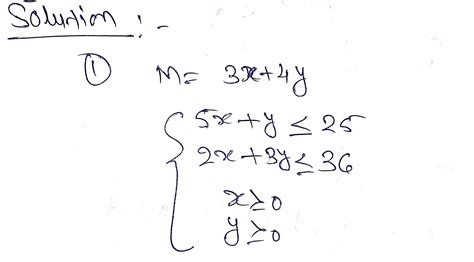 Solution :-
① M= 3x+4y
5x+y ≤ 25
2x+3y ≤ 36
x≥0
y≥0